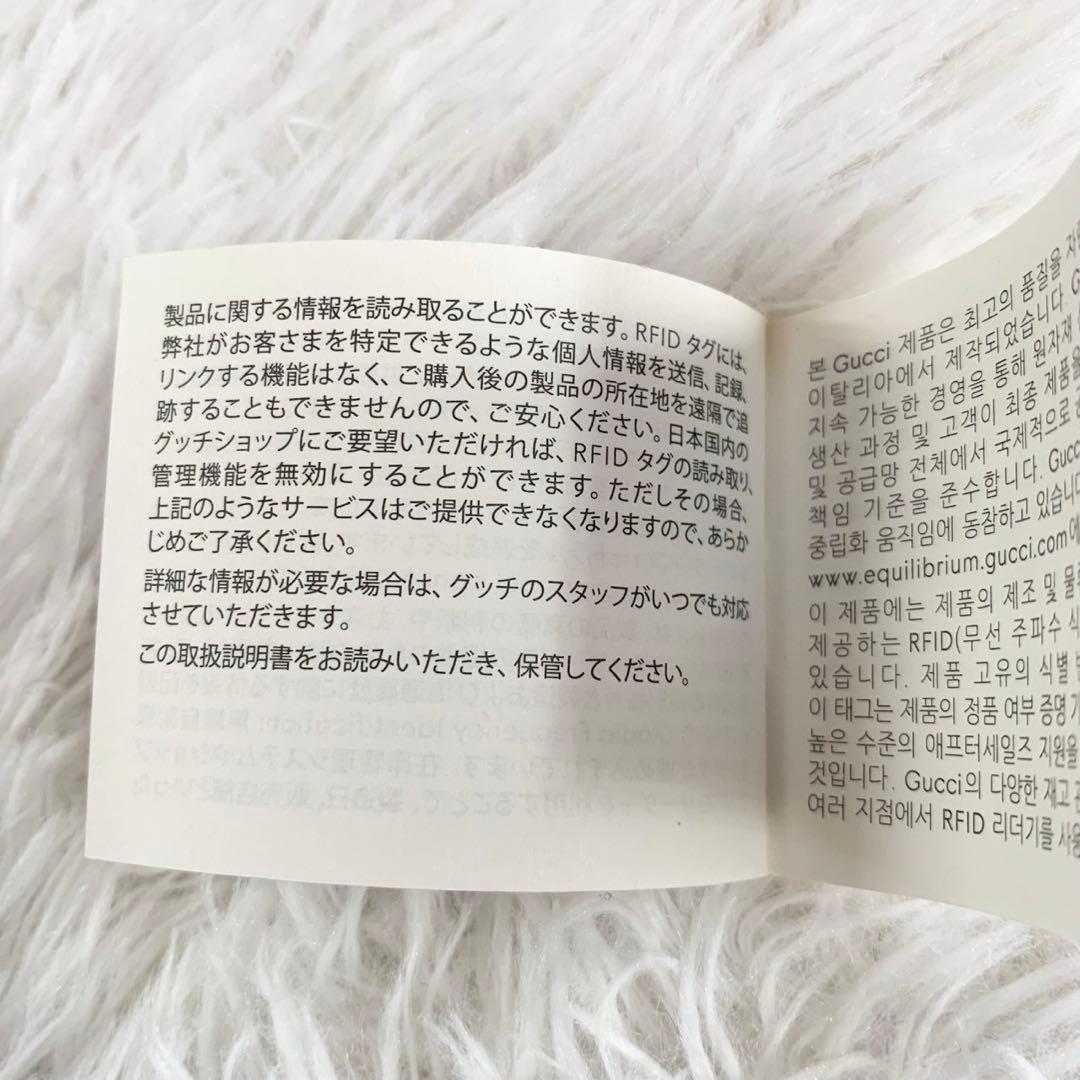 製品に関する情報を読み取ることができます。RFID タグには、
弊社がお客さまを特定できるような個人情報を送信、記録、
リンクする機能はなく、ご購入後の製品の所在地を遠隔で追
跡することもできませんので、ご安心ください。日本国内の
グッチショップにご要望いただければ、RFID タグの読み取り、
管理機能を無効にすることができます。ただしその場合、
上記のようなサービスはご提供できなくなりますので、あらか
じめご了承ください。
詳細な情報が必要な場合は、グッチのスタッフがいつでも対応
させていただきます。
この取扱説明書をお読みいただき、保管してください。
본 Gucci 제품은 최고의 품질을
이탈리아에서 제작되었습니다.
지속 가능한 경영을 통해 원자재
생산 과정 및 고객이 최종 제품을
및 공급망 전체에서 국제적으로
책임 기준을 준수합니다.
중립화 움직임에 동참하고 있습니다
www.equilibrium.gucci.com에
이 제품에는 제품의 제조 및
제공하는 RFID(무선 주파수
있습니다. 제품 고유의 식별
이 태그는 제품의 정품 여부 증명
높은 수준의 애프터세일즈 지원을
것입니다. Gucci의 다양한 재고
여러 지점에서 RFID 리더기를